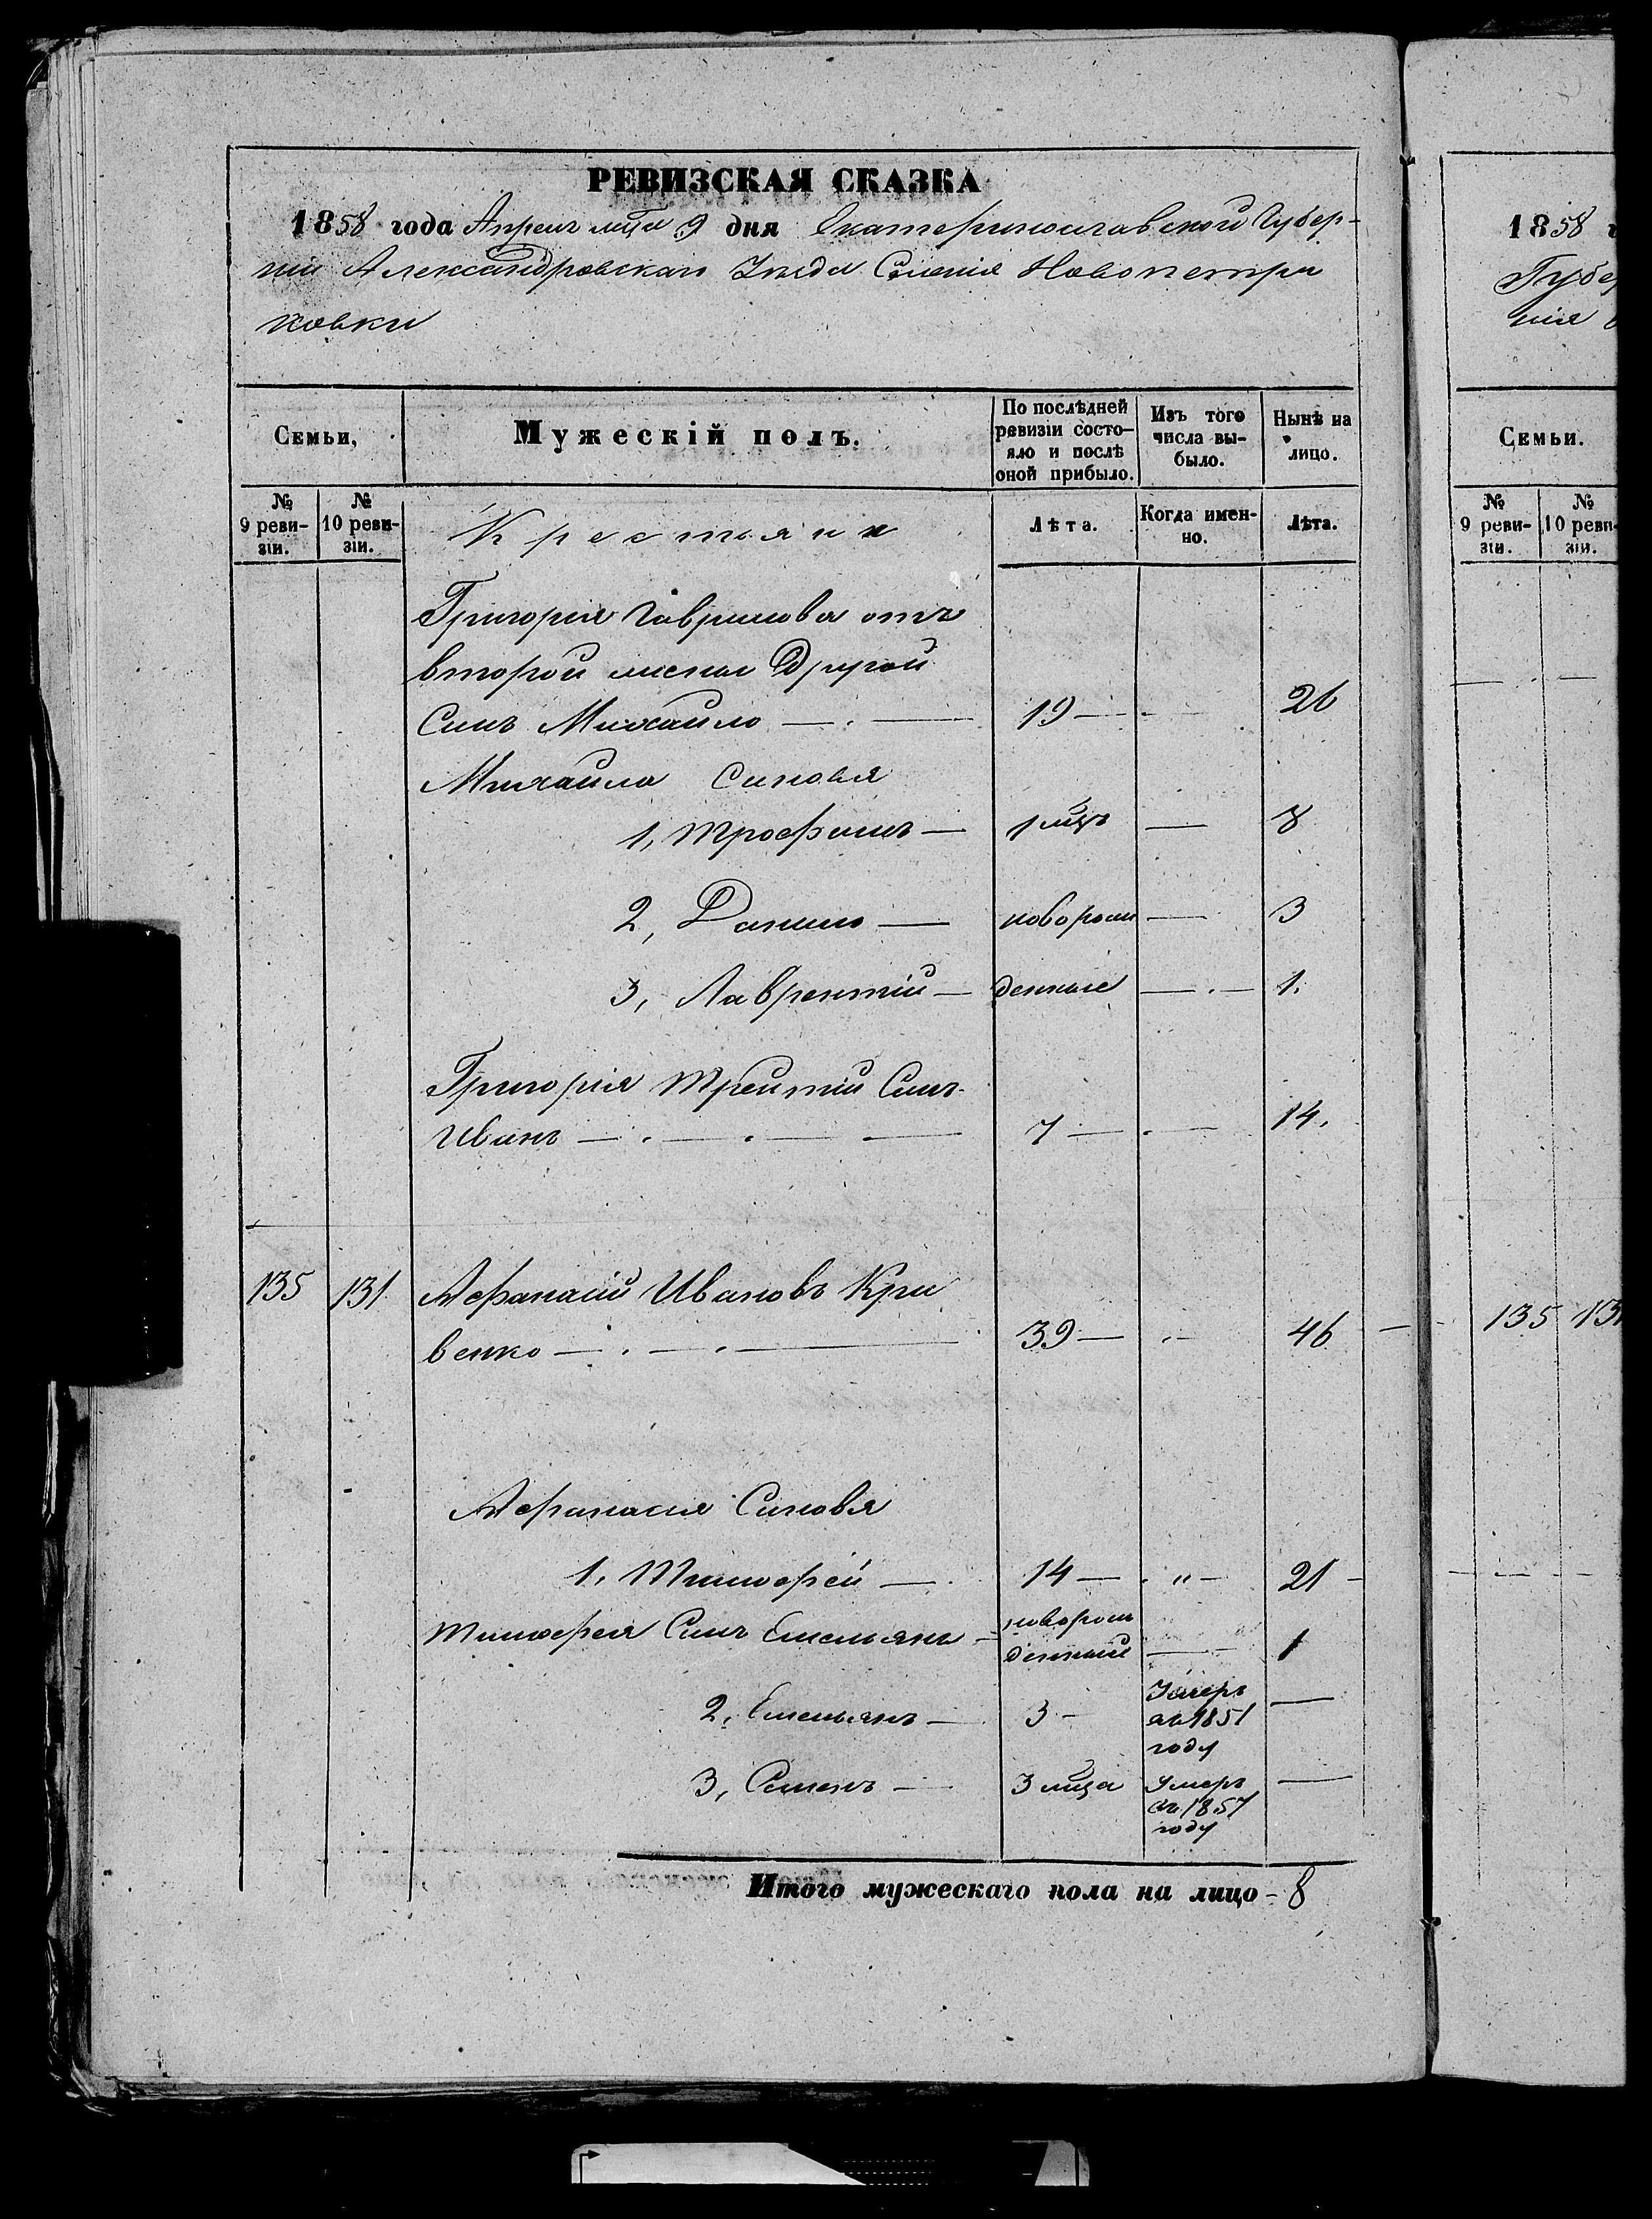 РЕВИЗСКАЯ СКАЗКА
1858 года Апреля мца 9 дня Екатеринославской Губер-
ніи Александровскаго Уезда Селенія Новопетри
ковки
Семьи,
Мужескій полъ.
По послѣдней ревизіи состо-яло и послѣ оной прибыло.
Изъ того числа вы-было.
Нынѣ на лицо.
№ 9 реви-зіи.
№ 10 реви-зіи.
Крестьяни
Лѣта.
Когда имен-но.
Лѣта.
Григорія Гаврилова отъ
второй жены Другой
Синъ Михайло — . — 19 — 26
Михайла Синовья
1, Трофимъ — 1 мцъ — 8
2, Данило — новорож — 3
3, Лаврентій — денные — . — 1.
Григорія Третій Синъ
Иванъ — . — . — — 7 — . — 14.
135 131 Афанасій Ивановъ Кри
венко — . — . — 39 — . — 46
Афанасия Синовья
1, Тимофей — 14 — " — 21
Тимофея Синъ Емельянъ — новорож
денные — 1
2, Емельянъ — 3 — Умеръ въ 1851 году —
3, Семенъ — 3 мца Умеръ въ 1857 году —
Итого мужескаго пола на лицо - 8
1858 г
Губер
нія
Семьи.
№ 9 реви-зіи.
№ 10 реви-зіи.
135 13